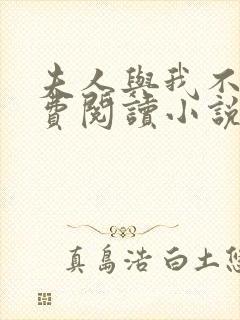 夫人與我不
費閱讀小說
真島浩 白土悠